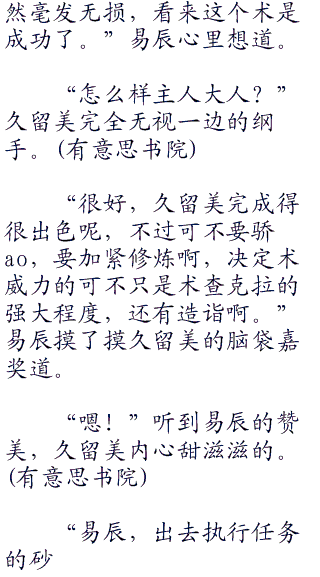 然毫发无损，看来这个术是
成功了。”易辰心里想道。
“怎么样主人大人？”
久留美完全无视一边的纲
手。(有意思书院)
“很好，久留美完成得
很出色呢，不过可不要骄
ao，要加紧修炼啊，决定术
威力的可不只是术查克拉的
强大程度，还有造诣啊。”
易辰摸了摸久留美的脑袋嘉
奖道。
“嗯！”听到易辰的赞
美，久留美内心甜滋滋的。
(有意思书院)
“易辰，出去执行任务
的砂